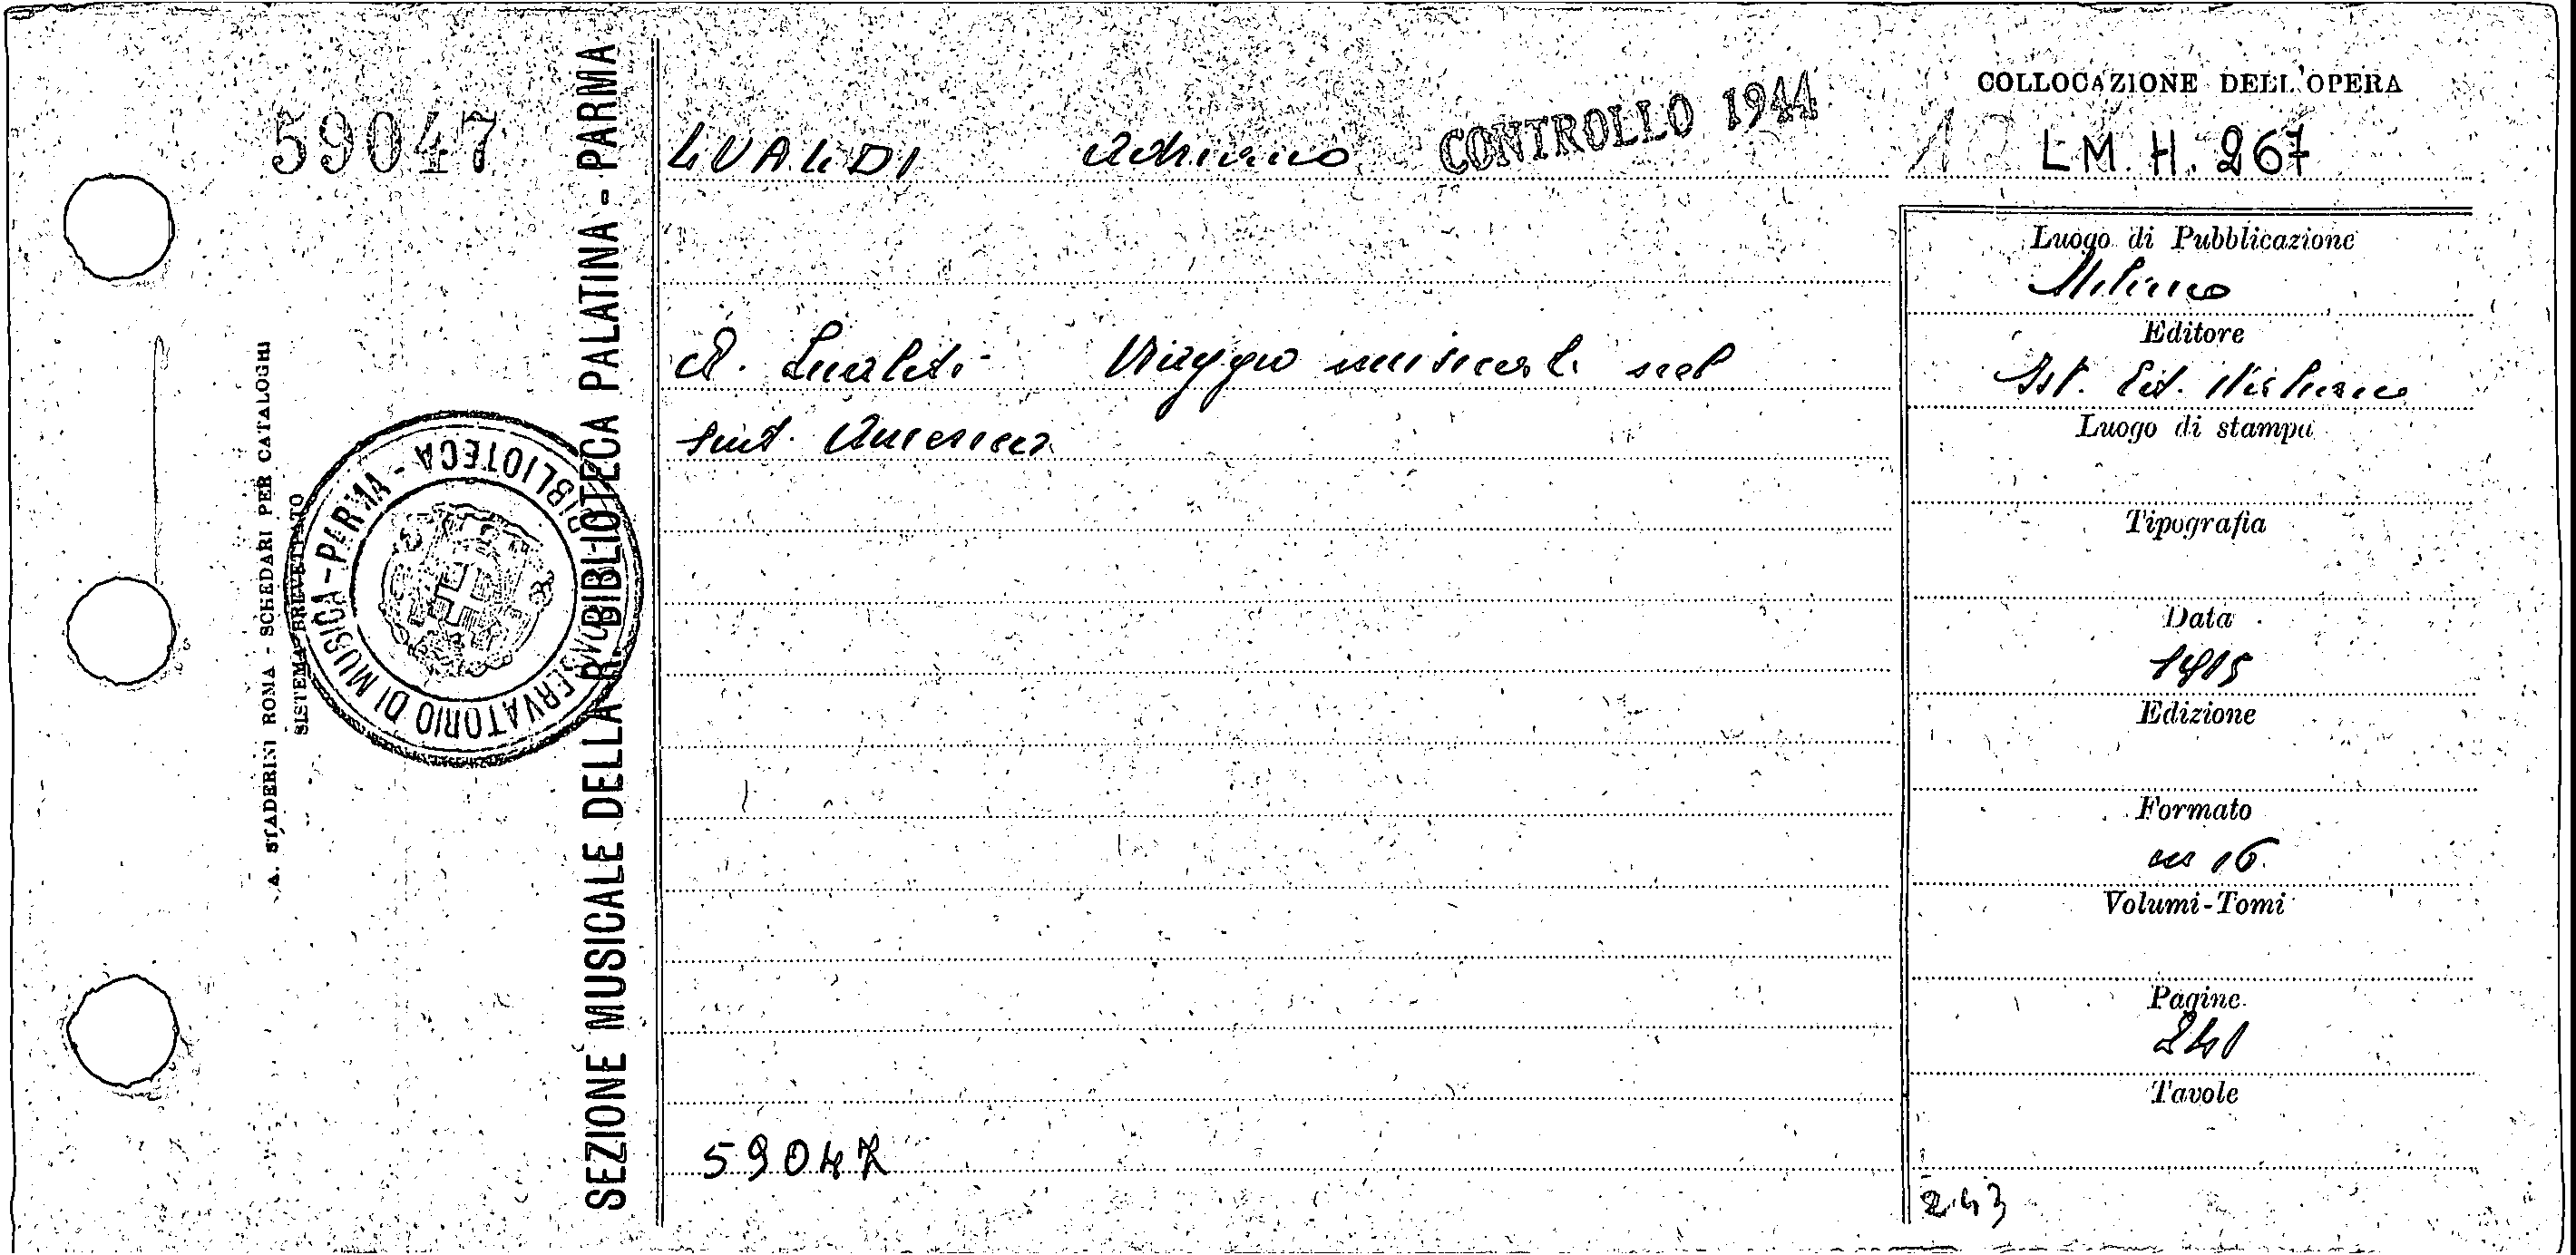 59047
A. STADERINI ROMA - SCHEDARI PER CATALOGHI
SISTEMA BREVETTATO
CONSERVATORIO DI MUSICA - PARMA - BIBLIOTECA
SEZIONE MUSICALE DELLA R. BIBLIOTECA PALATINA - PARMA
LUALDI Adriano
CONTROLLO 1944
A. Lualdi Viaggio musicale nel
sud America
59047
COLLOCAZIONE DELL'OPERA
LM. H. 267
Luogo di Pubblicazione
Milano
Editore
Ist. Ed. Italiano
Luogo di stampa
Tipografia
Data
Edizione
Formato
in 16.
Volumi-Tomi
Pagine
240
Tavole
2.43